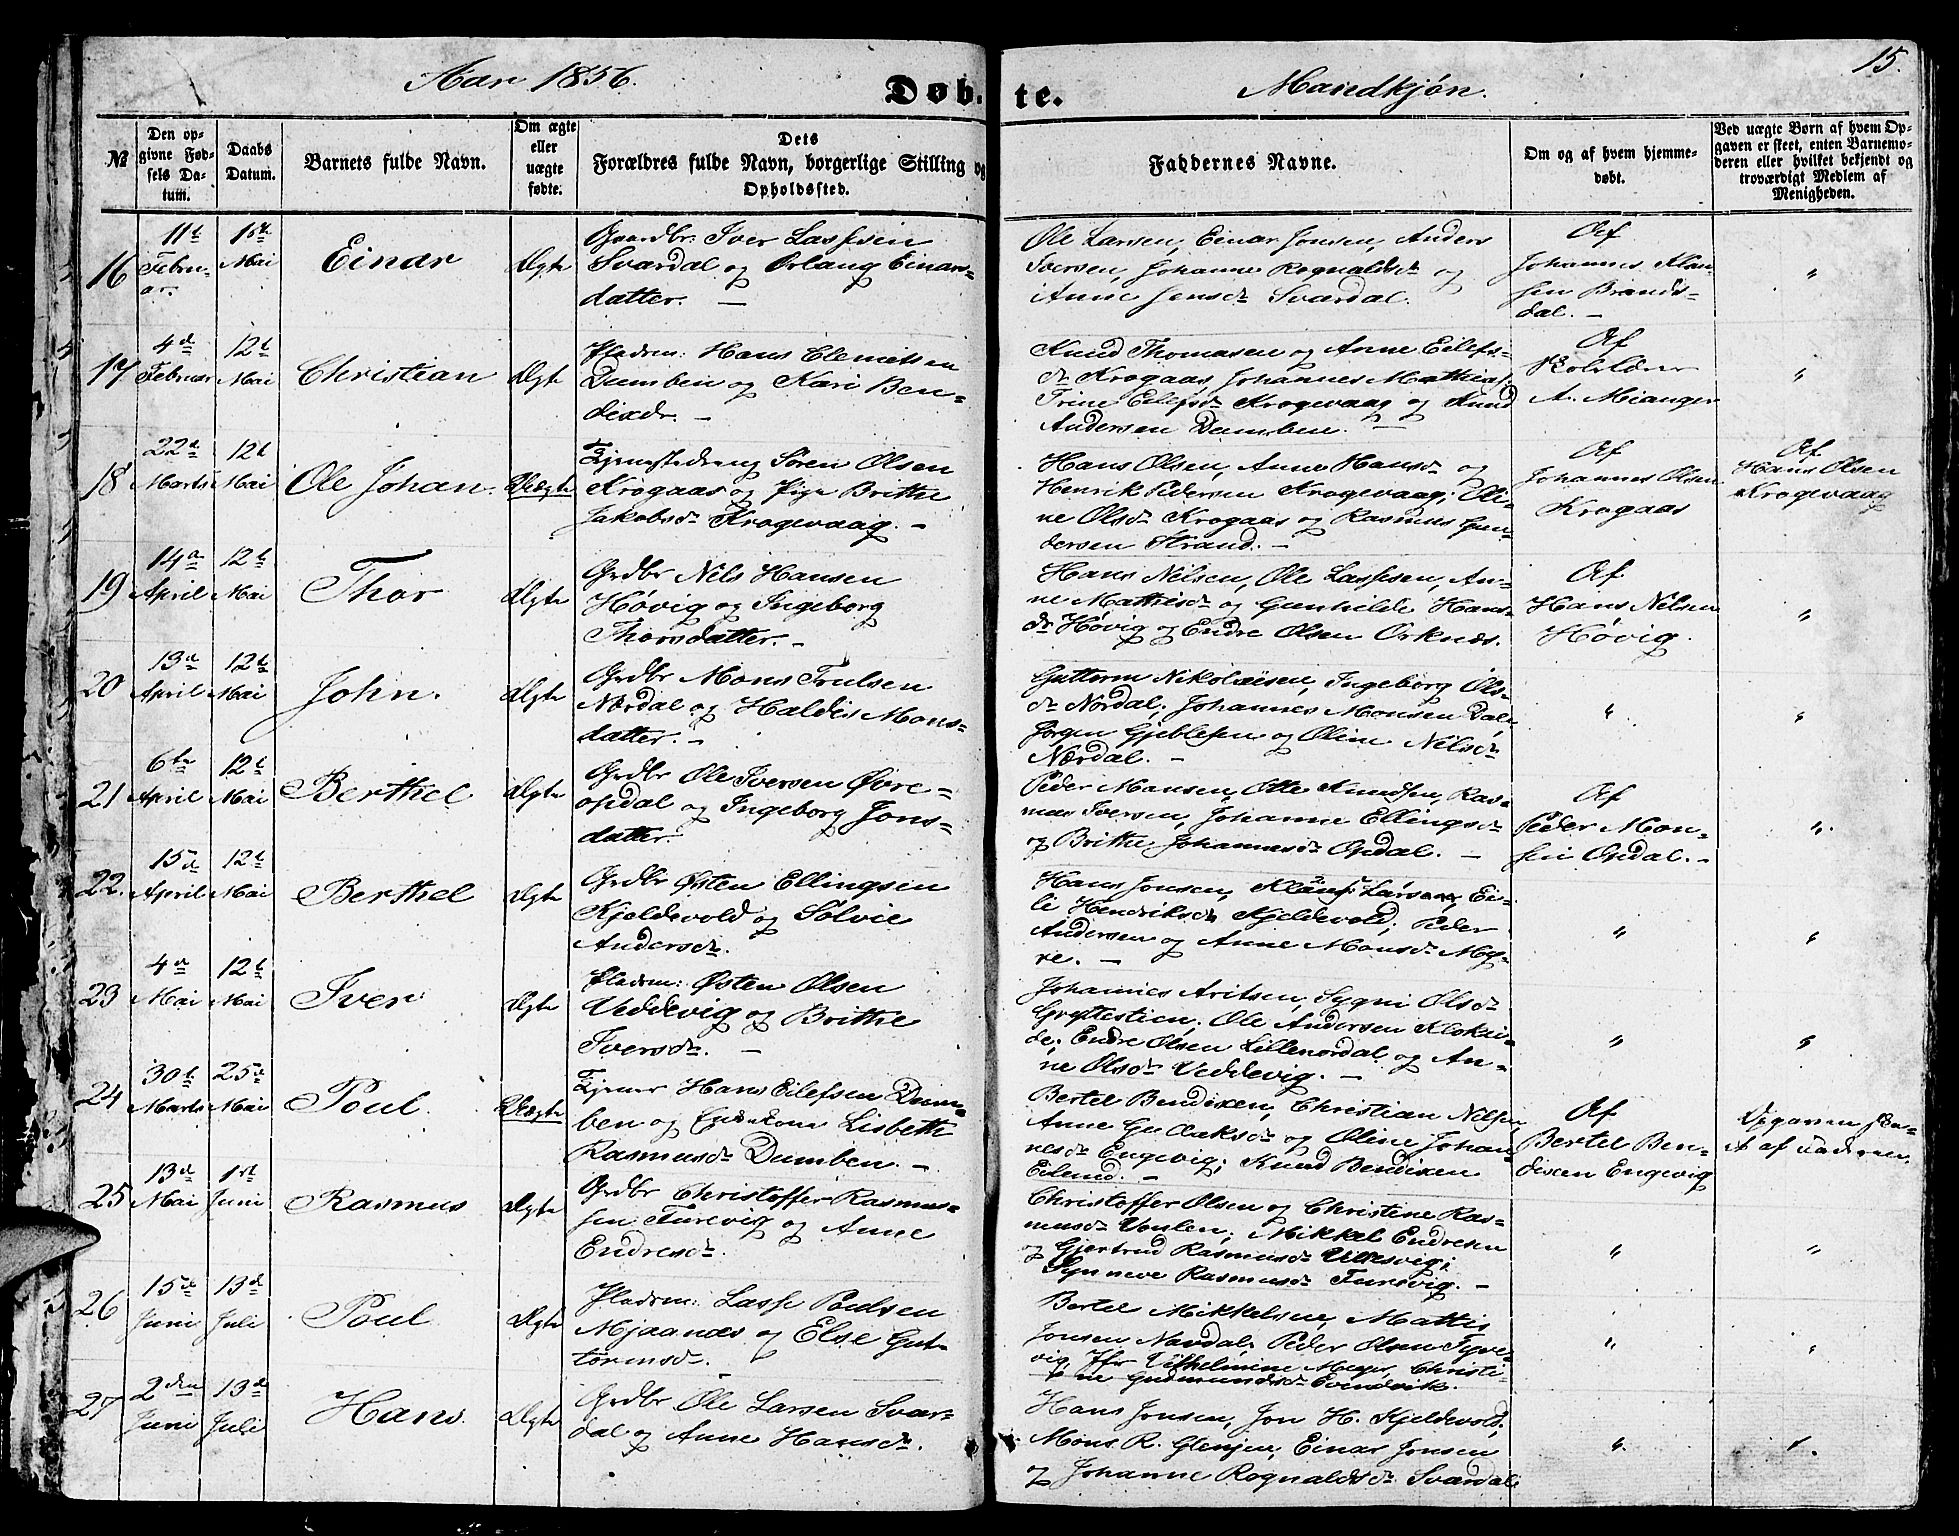 Aar 1856.
Døb-te.
Mandkjøn.
15.
№
Den op-
givne Fød-
sels Da-
tum.
Daabs
Datum.
Barnets fulde Navn.
Om ægte
eller
uægte
fødte.
Dets
Forældres fulde Navn, borgerlige Stilling og
Opholdssted.
Faddernes Navne.
Om og af hvem hjemme-
døbt.
Ved uægte Børn af hvem Op-
gaven er skeet, enten Barnemo-
deren eller hvilket bekjendt og
troværdigt Medlem af
Menigheden.
16
11t
Febru-
ar.
1st
Mai
Einar
Ægte
Gaardbr: Iver Lassesen
Svardal og Ørlaug Einar-
datter. —
Ole Larsen, Einar Jonsen, Anders
Iversen, Johanne Rognaldsdr og
Anne Jensdr Svardal.
Af
Johannes
Brands-
dal. —
"
17
4de
Februar
12t
Mai
Christian
Ægte
Pladsm: Hans Clemetsen
Dumben og Kari Ben-
dixdr. —
Knud Thomasen og Anne Eilefs-
dr Krogaas, Johannes Mathias.
Trine Eilefsdr Krogevaag og Knud
Andersen Dumben. —
Af
A. Mianger
"
18
22d
Marts
12t
Mai
Ole Johan.
Uægte
Tjenestedreng Søren Olsen
Krogaas og Pige Britthe
Jakobsdr Krogevaag. —
Hans Olsen, Anne Hansdr og
Henrik Pedersen Krogevaag; Oli-
ne Olsdr Krogaas og Rasmus Gun-
dersen Strand. —
Af
Johannes Olsen
Krogaas
Af
Hans Olsen
Krogevaag
19
14d
April
12t
Mai
Thor
Ægte
Grdbr Nels Hansen
Høvig og Ingeborg
Thorsdatter. —
Hans Nilsen, Ole Lassesen, An-
ne Mathisdr og Gunhilde Hans-
dr Høvig og Endre Olsen Orknes.
Af
Hans Nelsen
Høvig.
"
20
13d
April
12t
Mai
John.
Ægte
Grdbr Mons Trulsen
Nordal og Haldis Mons-
datter. —
Guttorm Nikolaisen, Ingeborg Ols-
dr Nordal; Johannes Monsen Dal,
Jørgen Gjeblesen og Oline Nelsdr
Nordal. —
"
"
21
6te
April
12t
Mai
Berthel
Ægte
Grdbr Ole Iversen Øvre-
opdal og Ingeborg Jons-
datter.
Peder Monsen, Otte Knudsen, Ras-
mus Iversen, Johanne Ellingsdr
og Britthe Johannesdr Opdal. —
Af
Peder Mon-
sen Opdal. —
"
22.
15d
April
12t
Mai
Berthel
Ægte
Grdbr Østen Ellingsen
Kjeldevold og Sølvie
Andersdr.
Hans Jonsen, Larsen, Ei-
li Hendriksdr Kjeldevold; Peder
Andersen og Anne Monsdr My-
re. —
"
"
23
4d
Mai
12t
Mai
Iver
Ægte
Pladsm: Østen Olsen
Veddevig og Britthe
Iversdr. —
Johannes Aritsen, Sygni Olsdr
Grytestien; Ole Andersen Klokei-
de; Endre Olsen Lillenordal og An-
ne Olsdr Veddevig. —
"
"
24
30t
Marts
25de
Mai
Poul.
Uægte
Tjener Hans Eilefsen Dum-
ben og Enkekone Lisbeth
Rasmusdr Dumben. —
Bertel Bendixen, Christian Nilsen,
Anne og Oline Johan-
nesdr Engevig; Knud Bendixen
Eilund. —
Af
Bertel Ben-
dixen Engevig
Opgaven
af
25
13d
Mai
1ste
Juni
Rasmus
Ægte
Grdbr Christoffer Rasmus-
sen Furevig og Anne
Endresdr.
Christoffer Olsen og Christine Ras-
musdr Mikkel Endresen
og Gjertrud Rasmusdr
Synneve Rasmusdr Furevig. —
"
"
26
15de
Juni
13de
Juli
Poul
Ægte
Pladsm: Lasse Poulsen
Mjaanes og Else Gut-
tormsdr.
Bertel Mikkelsen, Mattis
Jonsen Nordal, Peder Olsen Fyre-
vig, Jfr Vilhelmine Meyer, Christi-
ne Gudmundsdr Evindvik.
"
"
27
2den
Juni
13de
Juli
Hans.
Ægte
Grdbr Ole Larsen Svar-
dal og Anne Hansdr.
Hans Jonsen, Jon H. Kjeldevold,
Mons R. Glenjen, Einar Jonsen
og Johanne Rognaldsdr Svardal
"
"